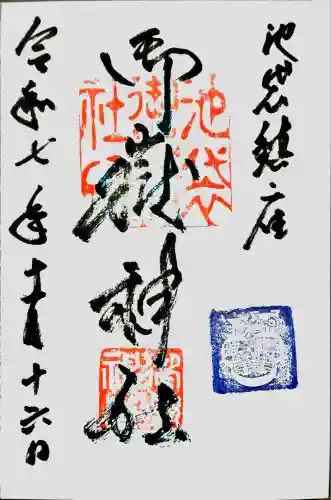 池袋鎮座
御嶽神社
令和七年十一月十六日
池袋
御嶽
神社